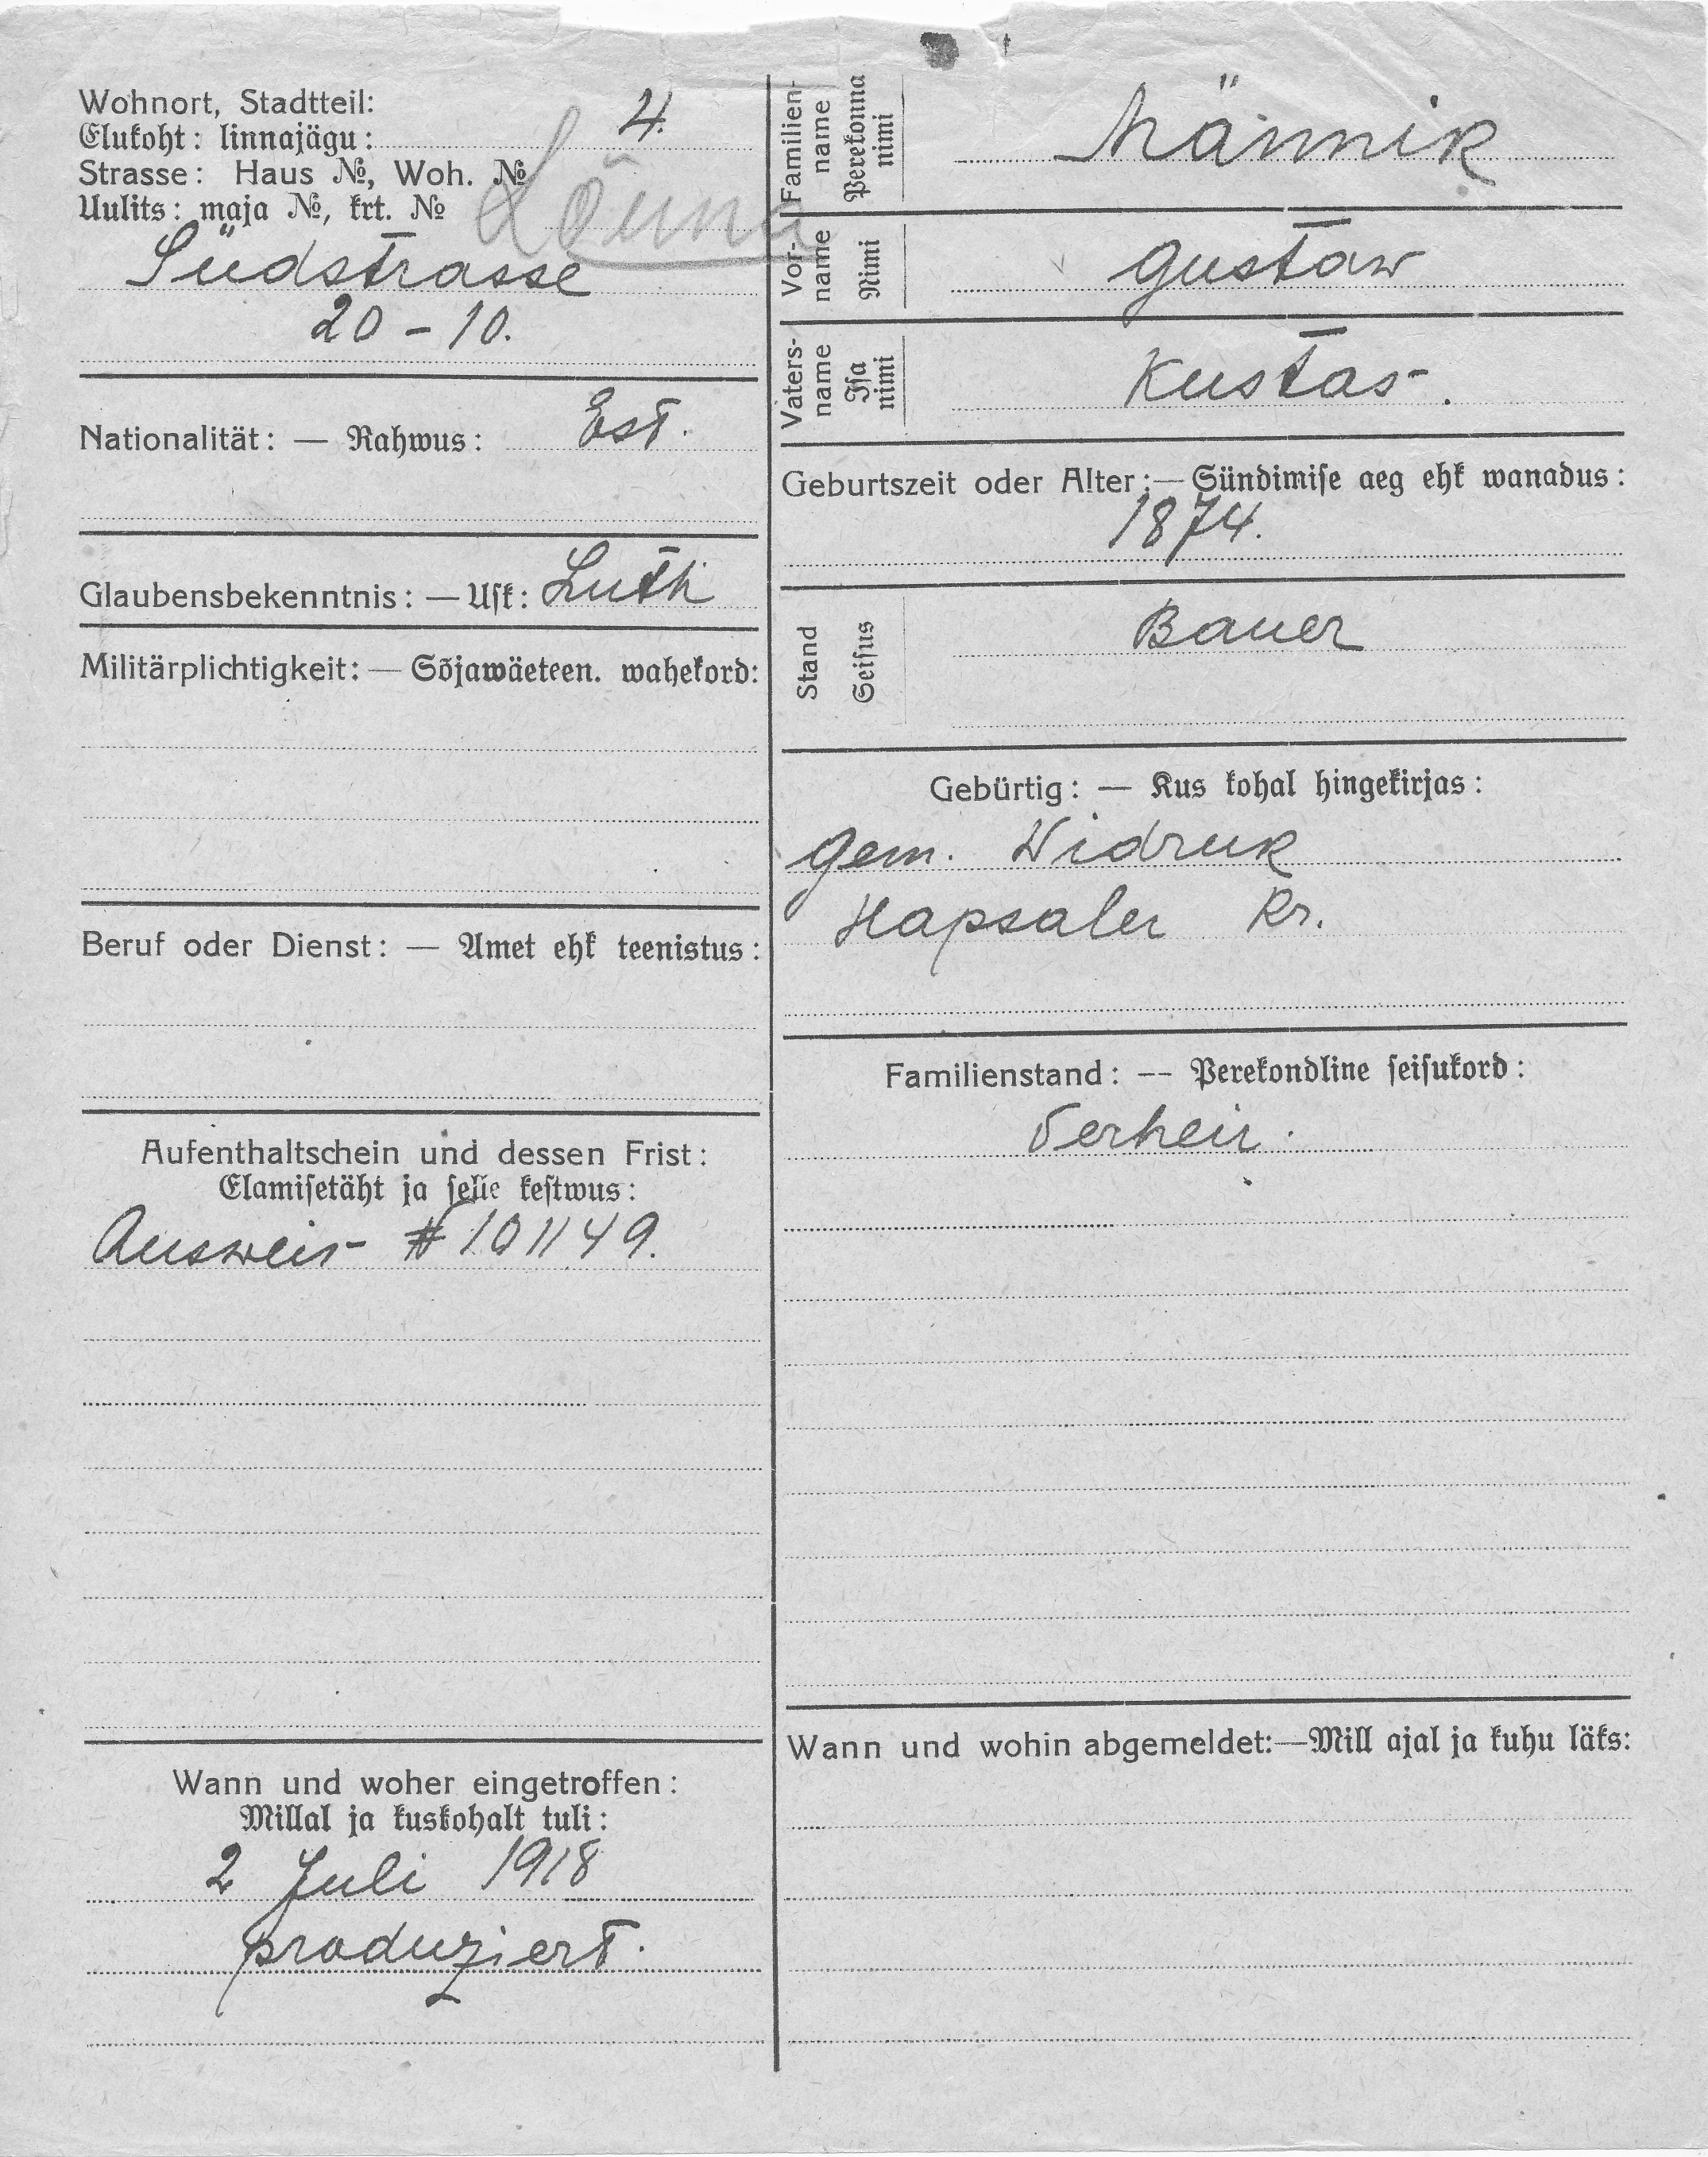 Wohnort, Stadtteil:
Elukoht: linnajägu: 4.
Strasse: Haus №, Woh. №
Uulits: maja №, krt. №
Lõuna
Südstrasse
20 – 10.
Nationalität: — Rahwus: Est.
Glaubensbekenntnis: — Usk: Luth
Militärplichtigkeit: — Sõjawäeteen. wahekord:
Beruf oder Dienst: — Amet ehk teenistus:
Aufenthaltschein und dessen Frist:
Elamisetäht ja selle kestwus:
Ausweis # 101149.
Wann und woher eingetroffen:
Millal ja kuskohalt tuli:
2 Juli 1918
produziert.
Familien-
name
Perekonna
nimi
Männik
Vor-
name
Nimi
Gustaw
Vaters-
name
Isa
nimi
Kustas.
Geburtszeit oder Alter: — Sündimise aeg ehk wanadus:
1874.
Stand
Seisus
Bauer
Gebürtig: — Kus kohal hingekirjas:
Gem. Widruk
Hapsaler Kr.
Familienstand: -- Perekondline seisukord:
Verheir.
Wann und wohin abgemeldet:—Mill ajal ja kuhu läks: